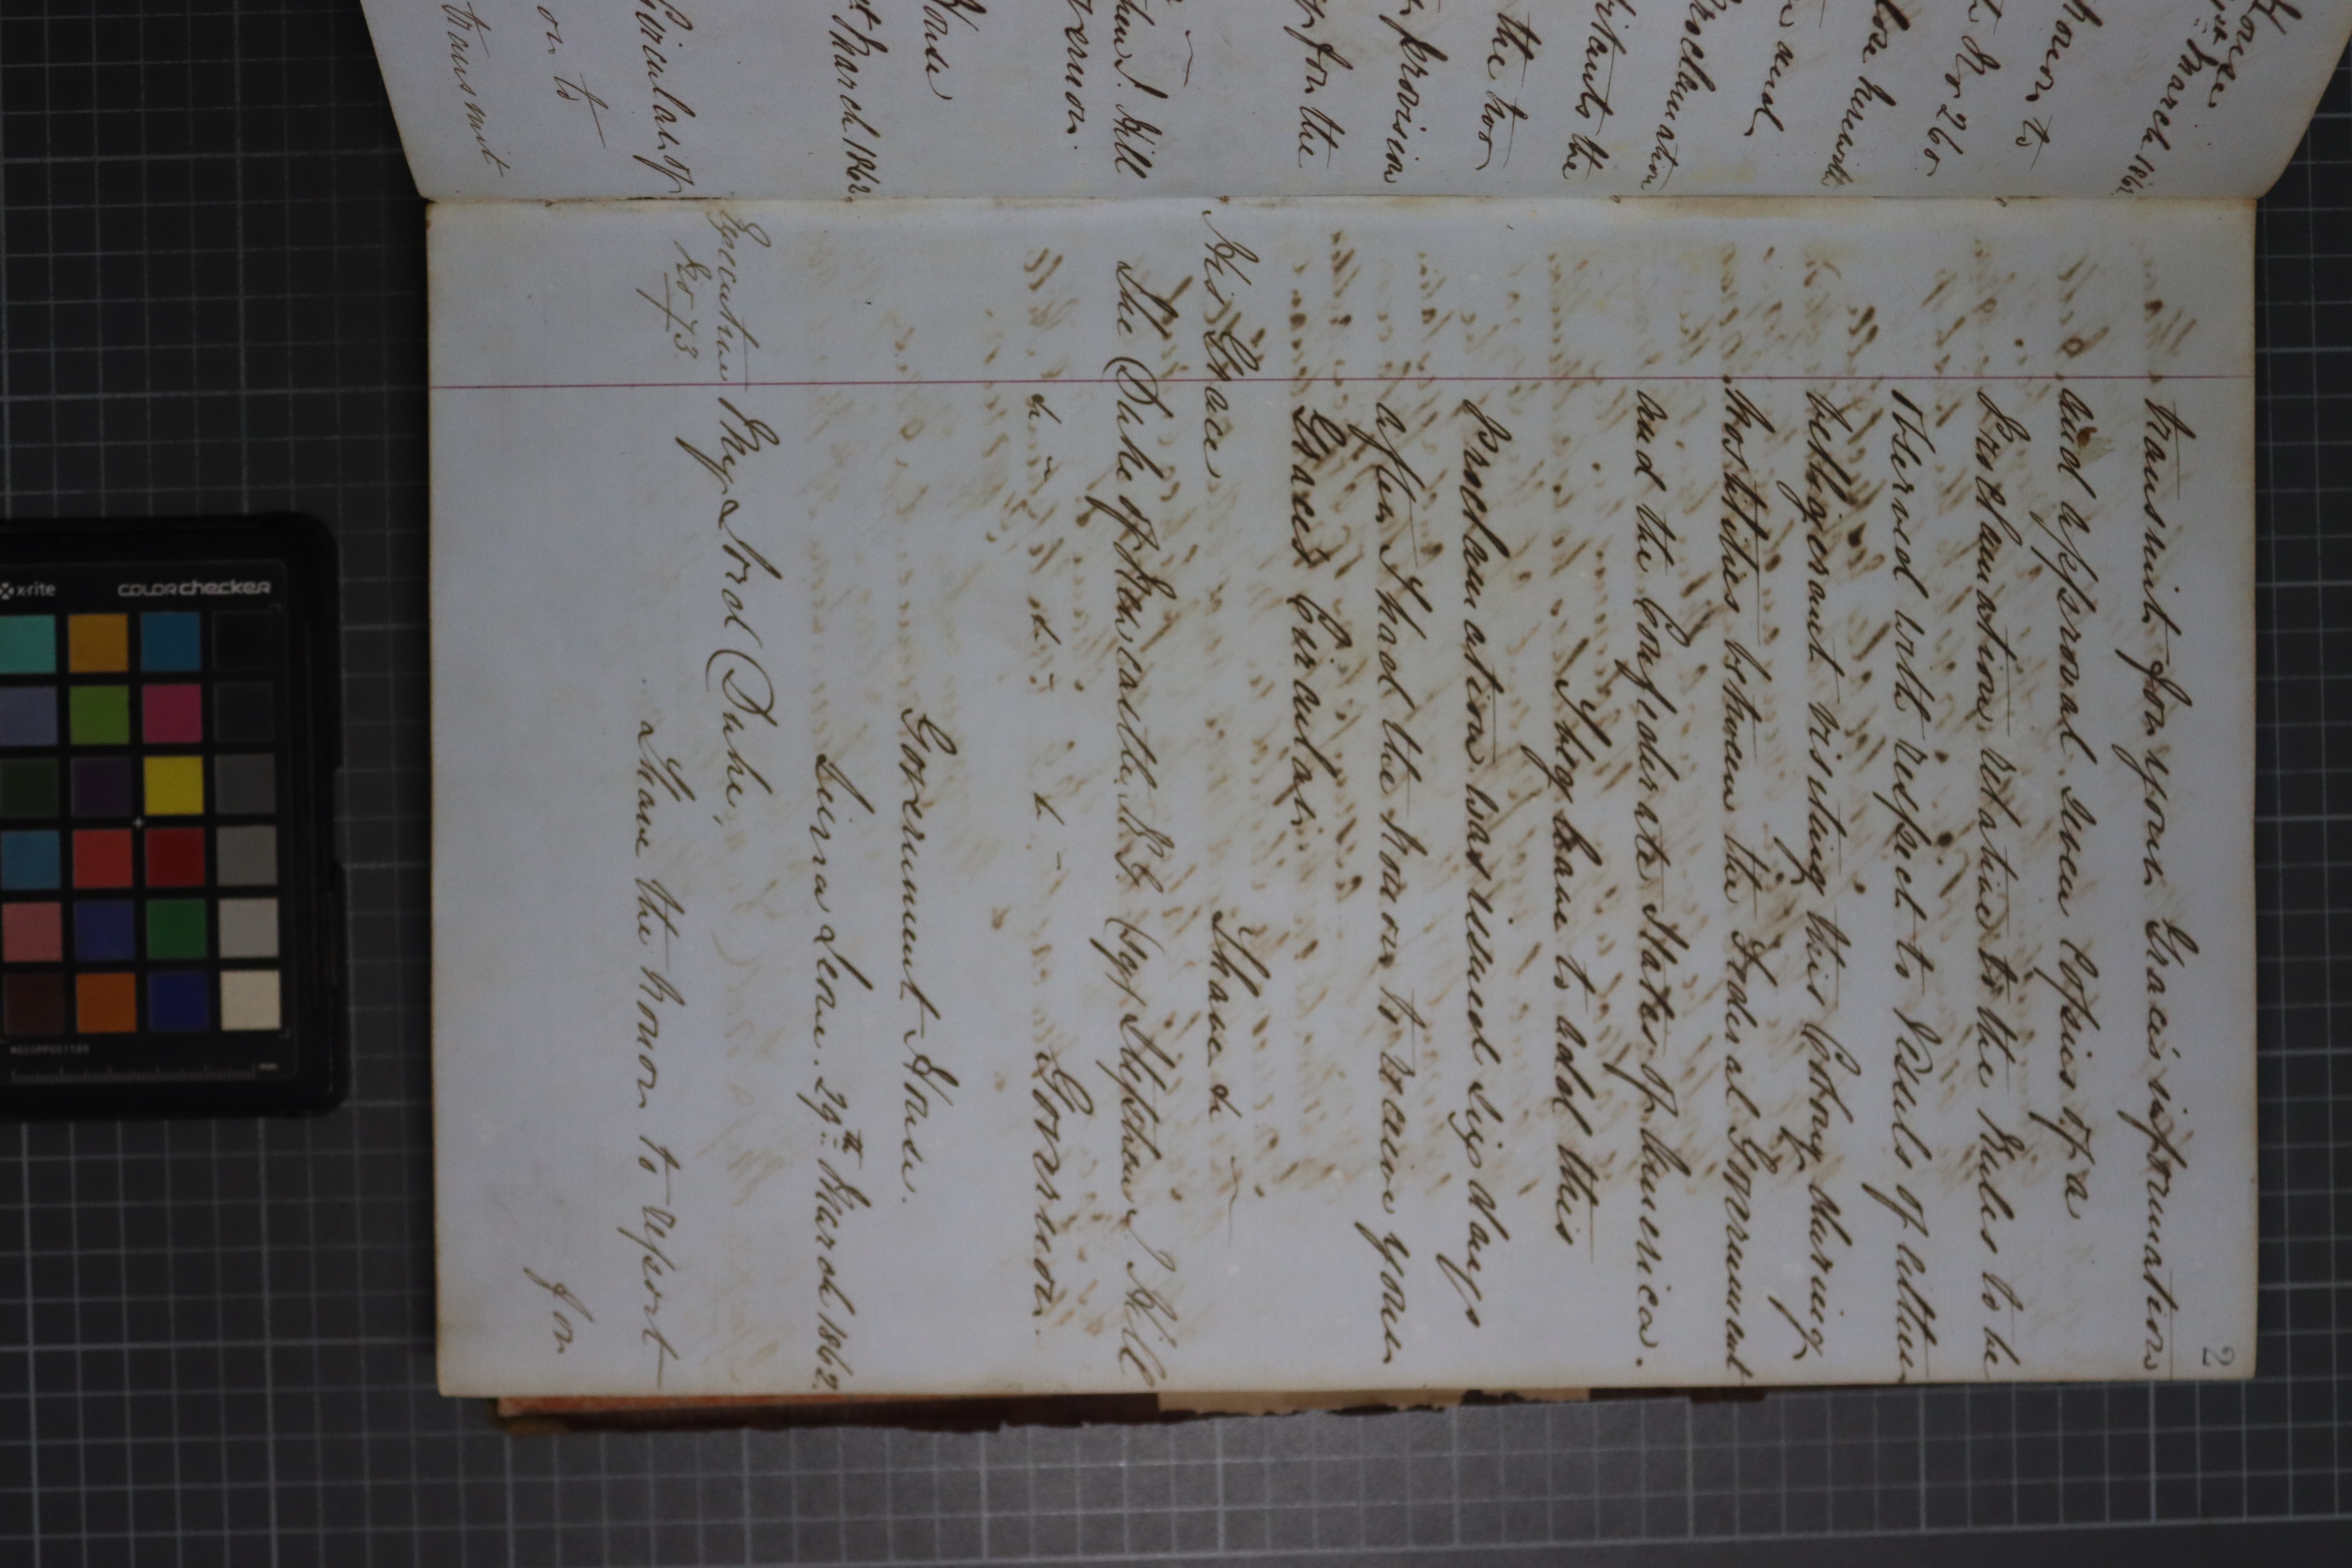 House
March 1862
honor to
No 26 of
herewith
and
Proclamation
the
the two
provision
upon the
Hill
Governor.
House
March 1862
Circular of
or to
transmit
2
transmit for your Grace's information
and approval seven copies of a
Proclamation relative to the Rules to be
observed with respect to Vessels of either
belligerent visiting this Colony during
hostilities between the Federal Government
and the Confederate States of America.
I beg leave to add this
proclamation was issued six days
after I had the honor to receive your
Grace's Circular.
I have &
His Grace
The Duke of Newcastle K.G. (sg) Stephen J Hill
& - & - & - Governor.
Government House.
Sierra Leone. 29th March 1862.
Executive My Lord Duke,
No 73.
I have the honor to report
for
x-rite
COLORchecker